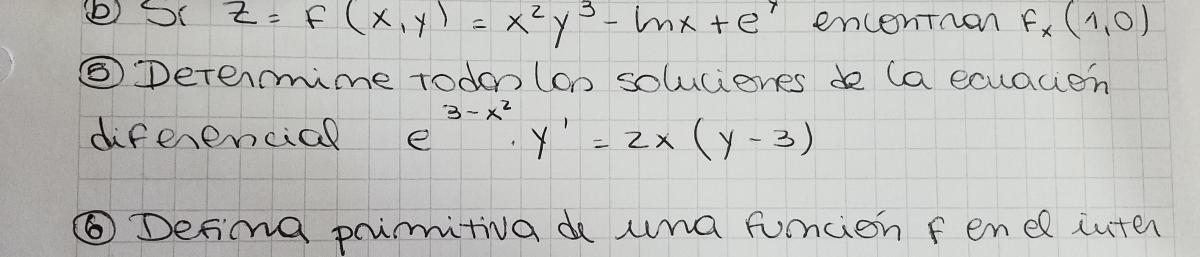 b) Si z = f(x,y) = x²y³ - lnx + eʸ encontrar fₓ(1,0)
⑤ Determine todas las soluciones de la ecuación
diferencial e^(3-x²) . y' = 2x (y-3)
⑥ Defina primitiva de una función f en el inter